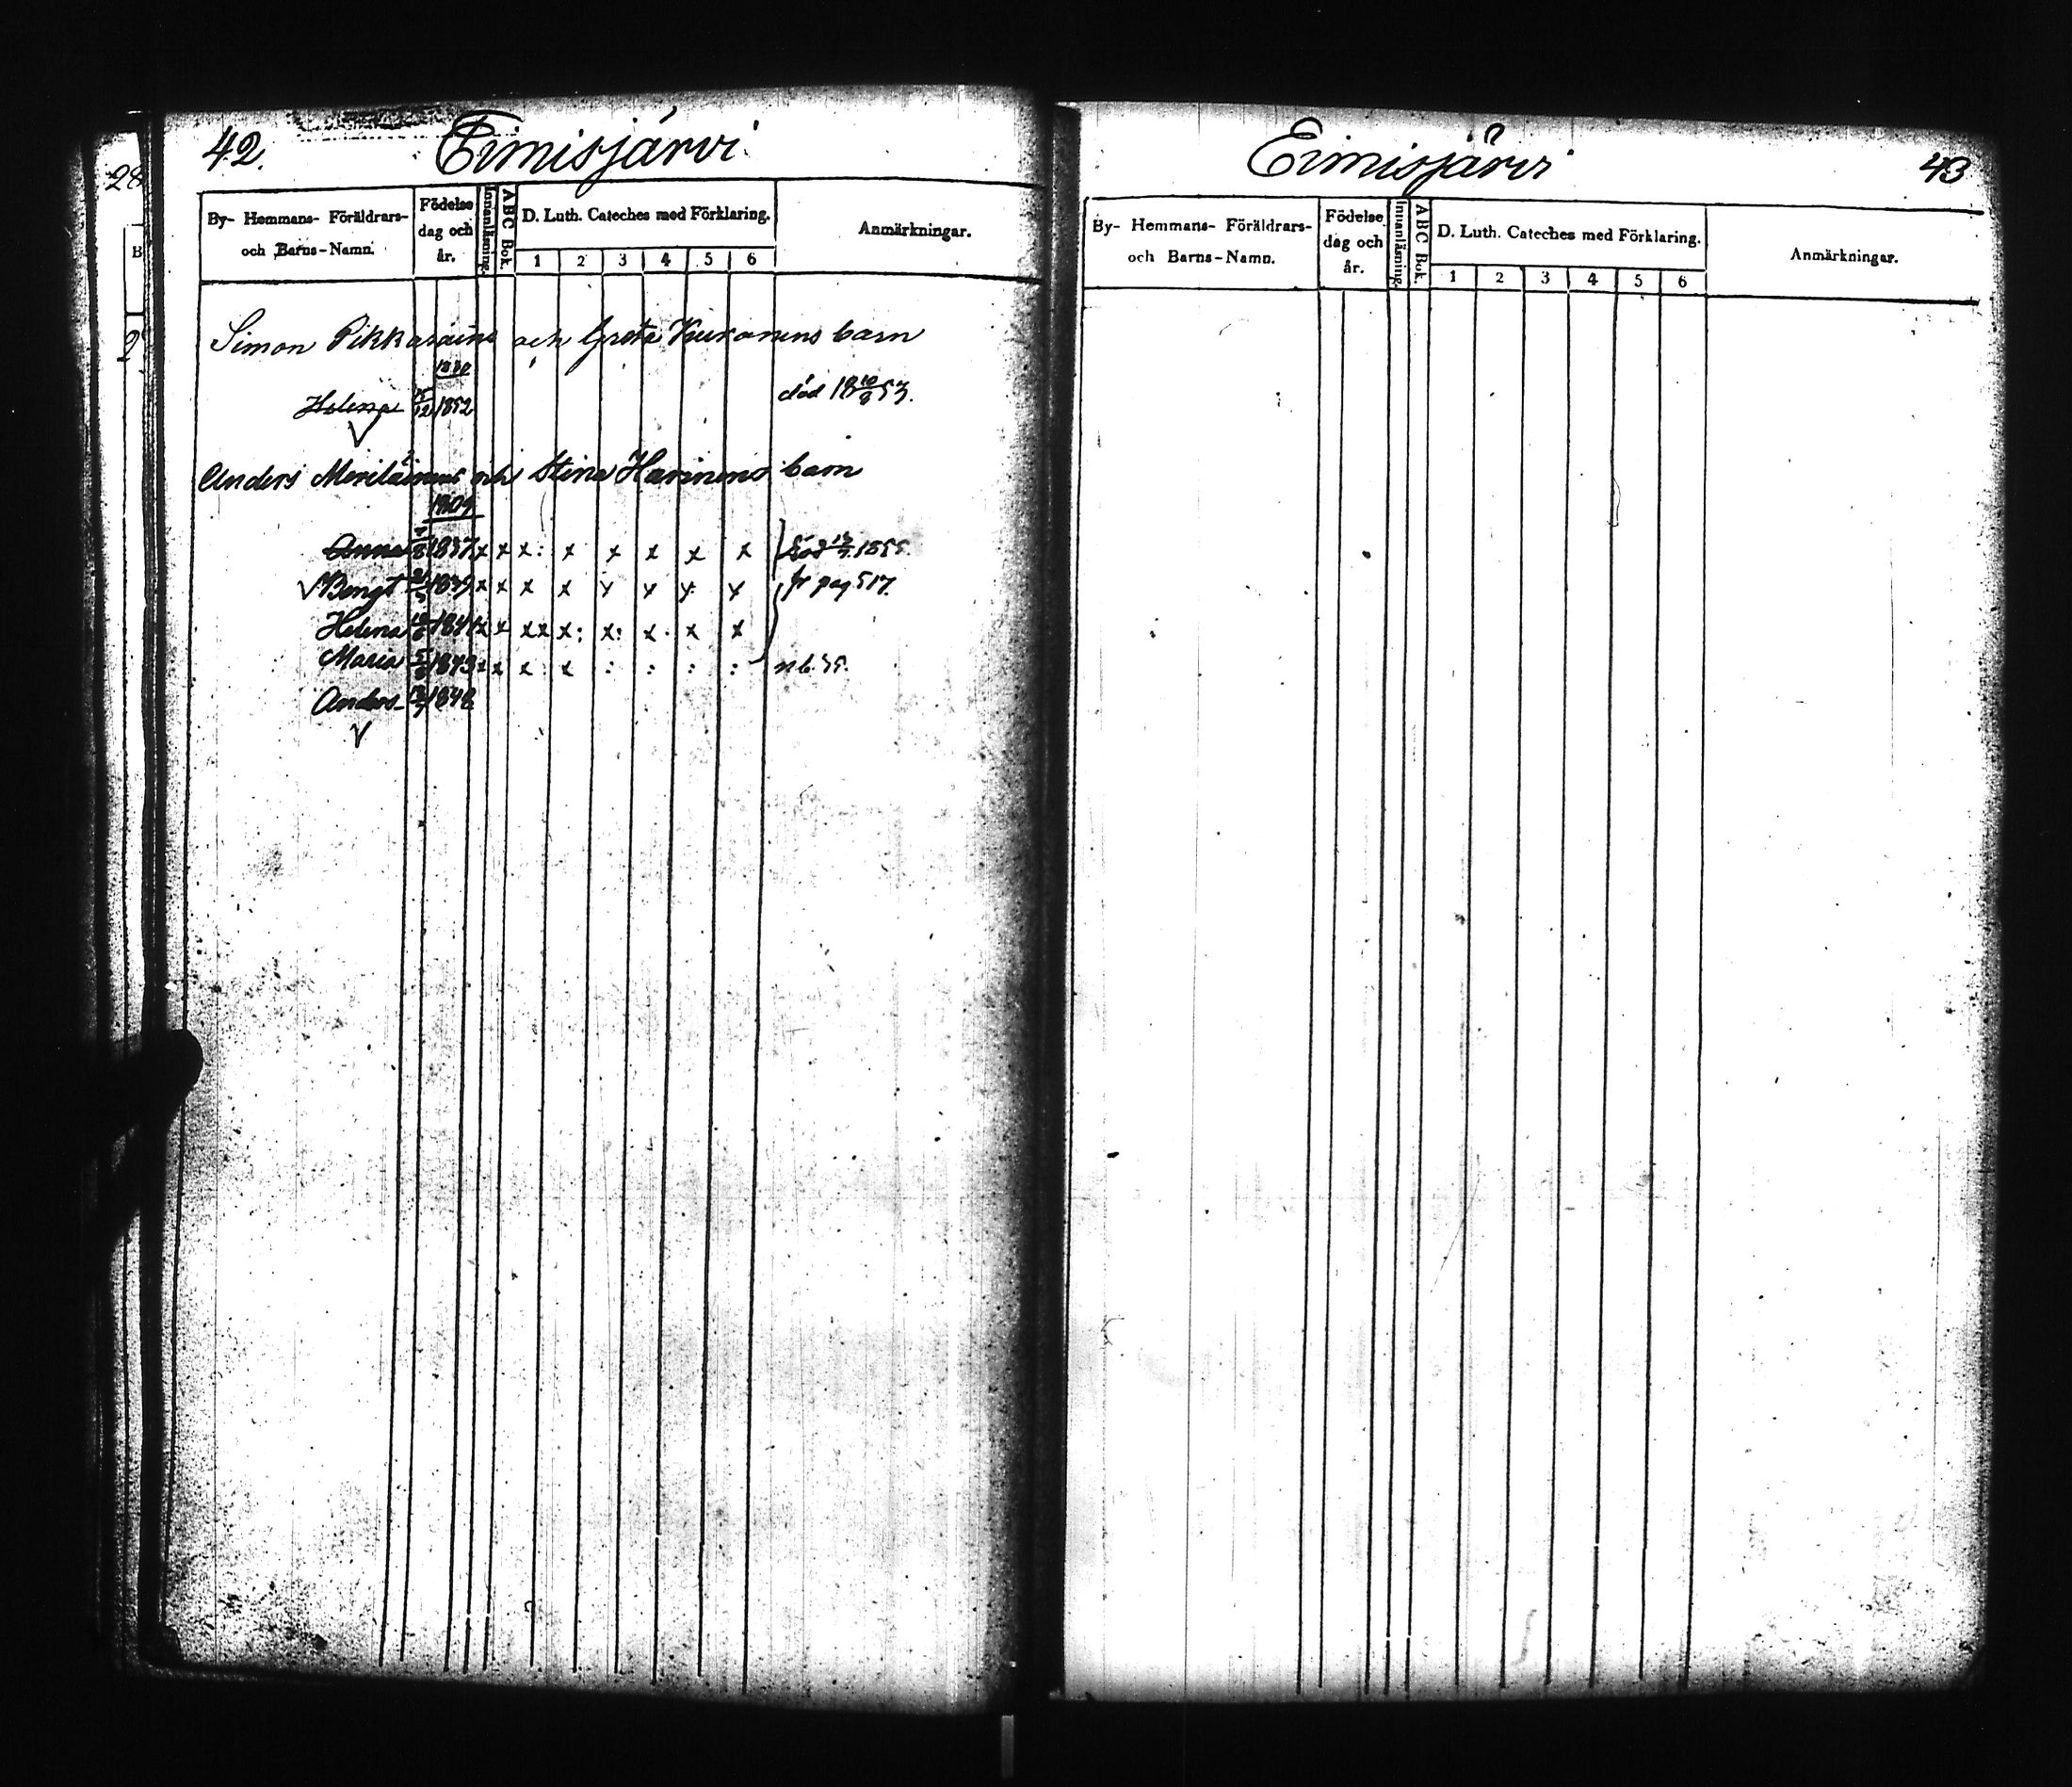 42.
Eimisjärvi
By- Hemmans- Föräldrars-
och Barns-Namn.
Födelse
dag och
år.
Innanläsning.
ABC Bok.
D. Luth. Cateches med Förklaring.
1 2 3 4 5 6
Anmärkningar.
Simon Pikkarains och Greta barn
Helena 12 1852 död 18 10/8 53.
Anders Meriläinens och Stina Harinens barn
1809
Anna 8 1837 x x x: x x x x x död 1855
Bengt 1839 x x x x x x x x fr pag 517.
Helena 1841 x x xx x: x: x. x x
Maria 5 1843 x x x x : : : :
Anders 1848
Eimisjärvi
43
By- Hemmans- Föräldrars-
och Barns-Namn.
Födelse
dag och
år.
Innanläsning.
ABC Bok.
D. Luth. Cateches med Förklaring.
1 2 3 4 5 6
Anmärkningar.
28
B
2